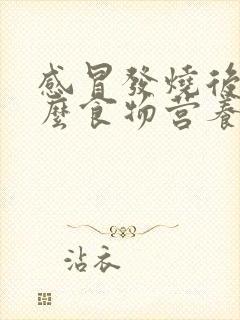 感冒發燒後
麼食物營養
沾衣